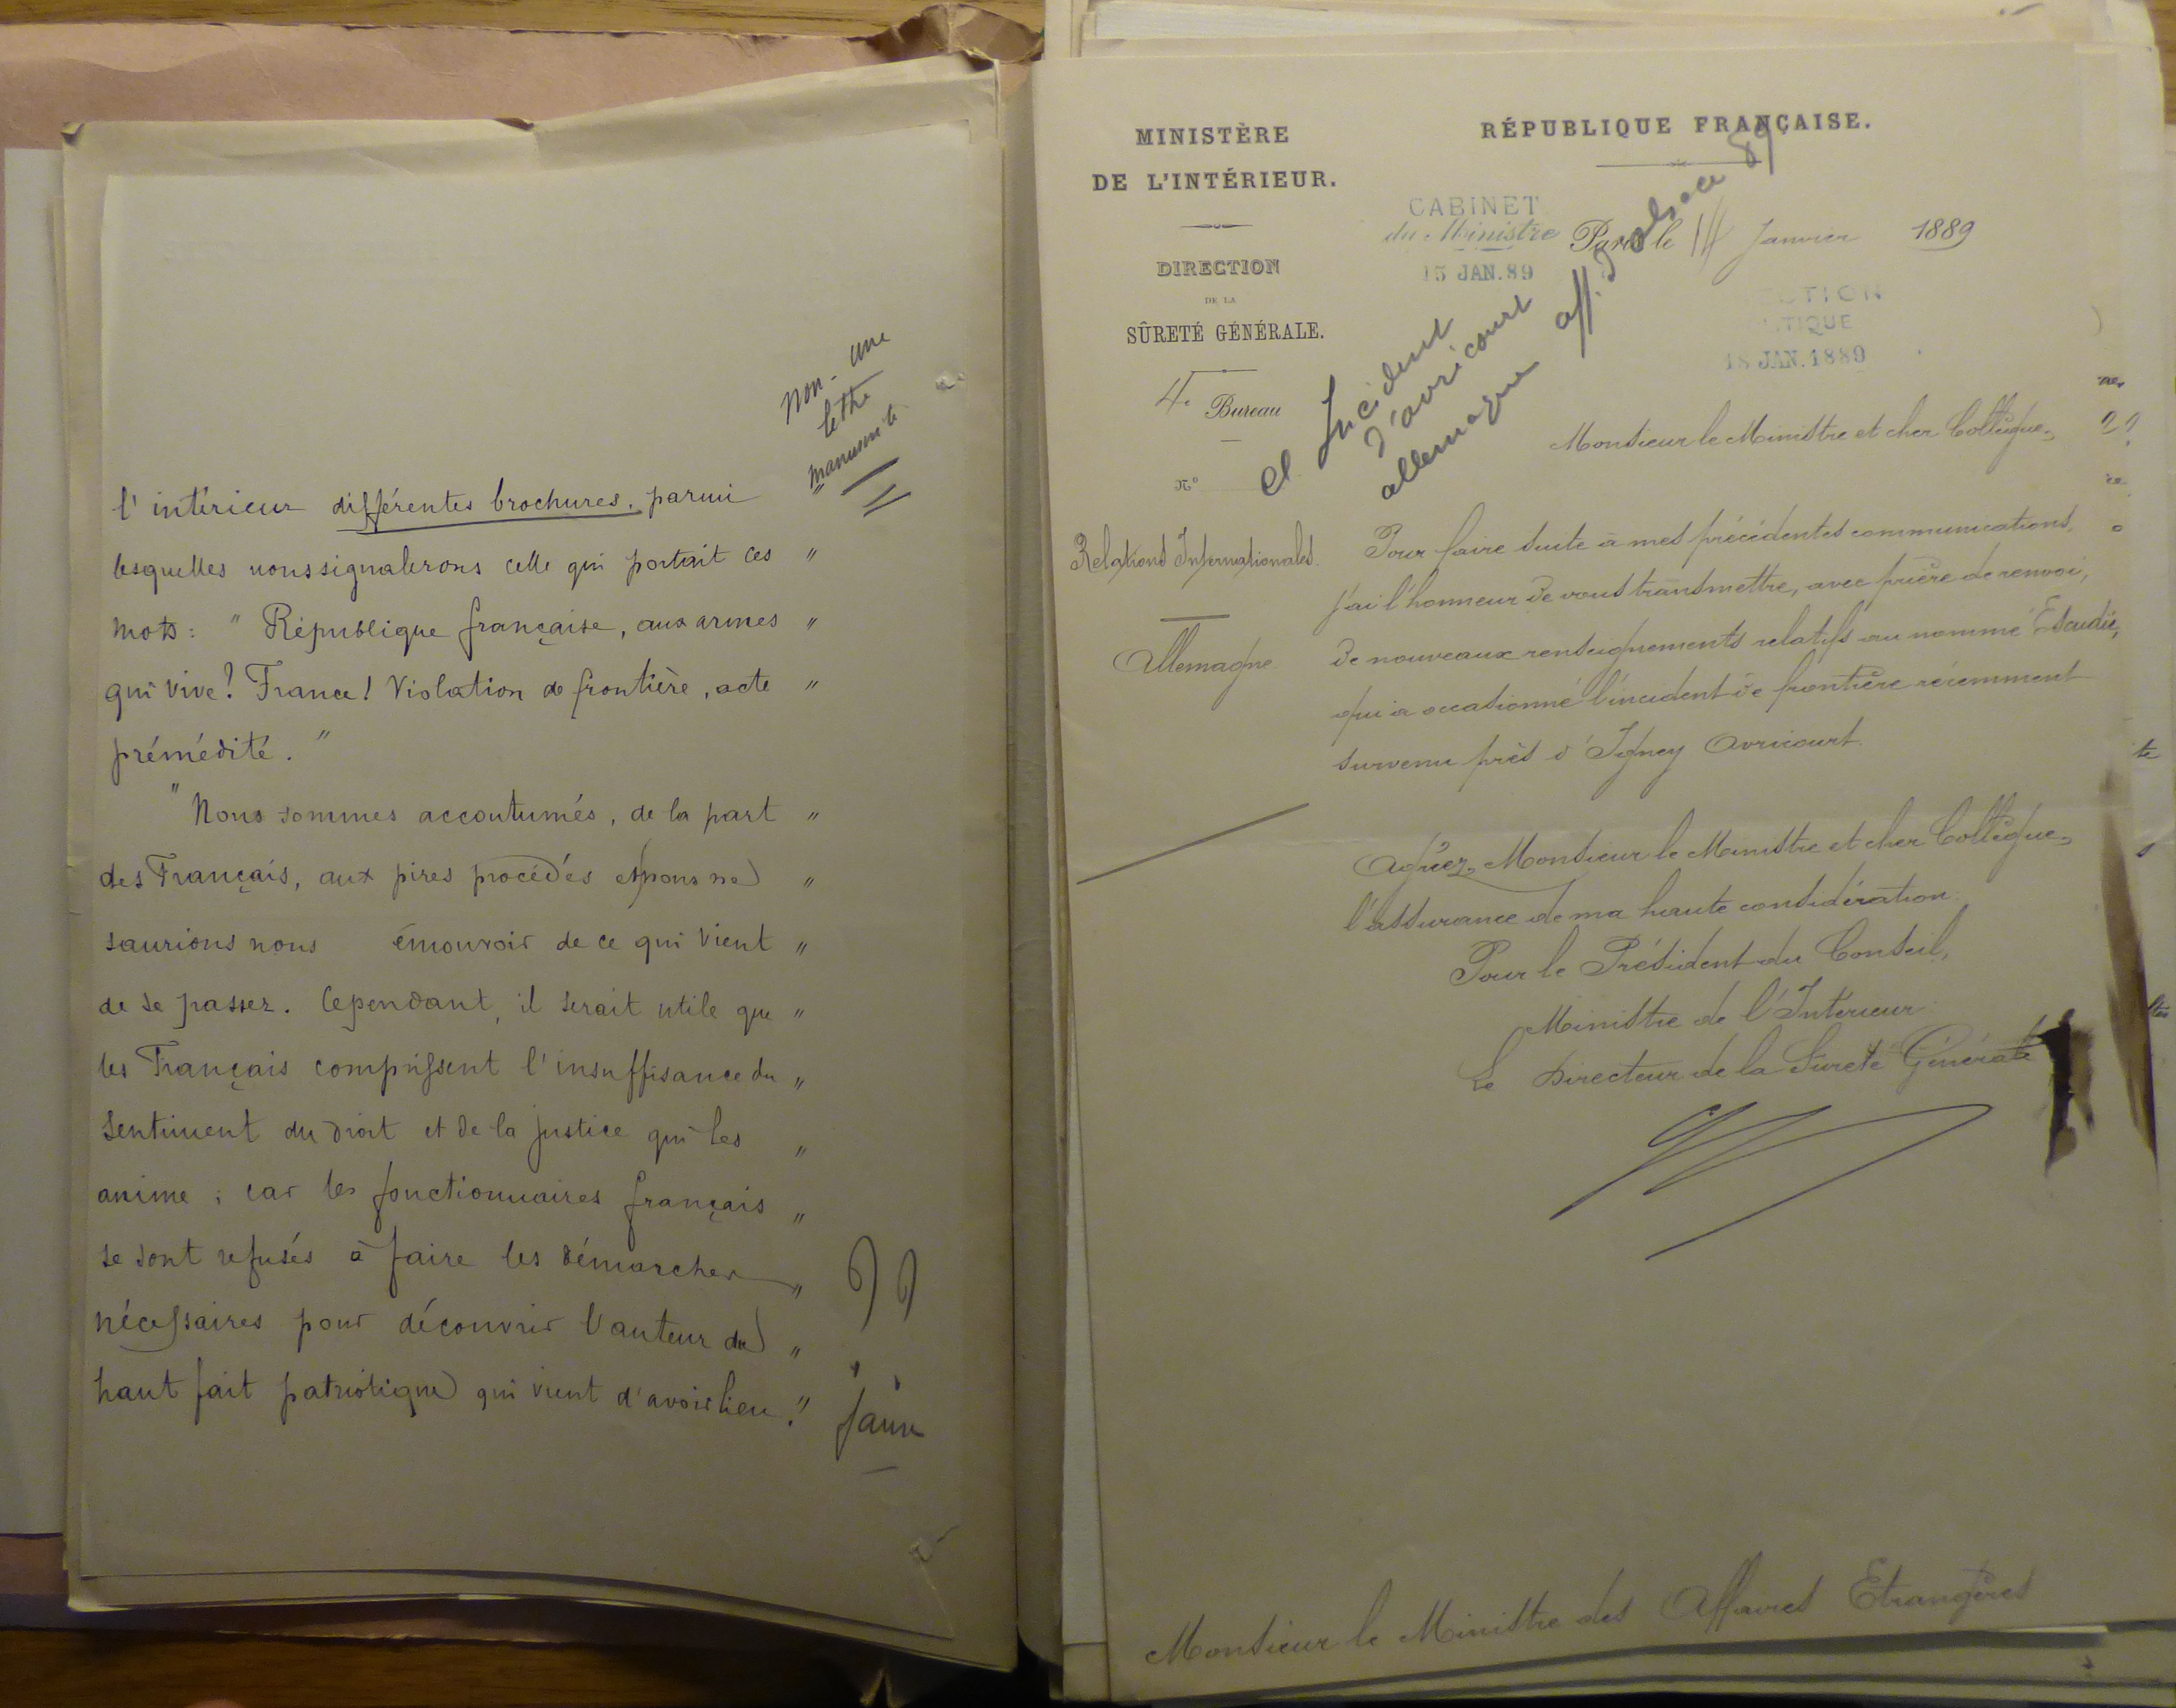 non - une
lettre
manuscrite
l'intérieur différentes brochures, parmi "
lesquelles nous signalerons celle qui portait ces "
mots : " République française, aux armes "
qui vive ! France ! Violation de frontière, acte "
prémédité. "
" Nous sommes accoutumés, de la part "
des Français, aux pires procédés et nous ne "
saurions nous émouvoir de ce qui vient "
de se passer. Cependant, il serait utile que "
les Français comprissent l'insuffisance du "
sentiment du droit et de la justice qui les "
anime ; car les fonctionnaires français "
se sont refusés à faire les démarches "
nécessaires pour découvrir l'auteur du "
haut fait patriotique qui vient d'avoir lieu. "
faux
MINISTÈRE
DE L'INTÉRIEUR.
DIRECTION
DE LA
SÛRETÉ GÉNÉRALE.
4e Bureau
N°
Relations Internationales.
Allemagne
RÉPUBLIQUE FRANÇAISE.
CABINET
du Ministre
15 JAN. 89
Paris le 14 Janvier 1889
CTION
TIQUE
18 JAN. 1889
cl Incident
d'avricourt
allemagne aff. d'alsace 89
Monsieur le Ministre et cher Collègue,
Pour faire suite à mes précédentes communications,
j'ai l'honneur de vous transmettre, avec prière de renvoi,
de nouveaux renseignements relatifs au nommé Escudié,
qui a occasionné l'incident de frontière récemment
survenu près d'Igney Avricourt.
Agréez, Monsieur le Ministre et cher Collègue,
l'assurance de ma haute considération.
Pour le Président du Conseil,
Ministre de l'Intérieur
Le Directeur de la Sureté Générale
Monsieur le Ministre des Affaires Etrangères